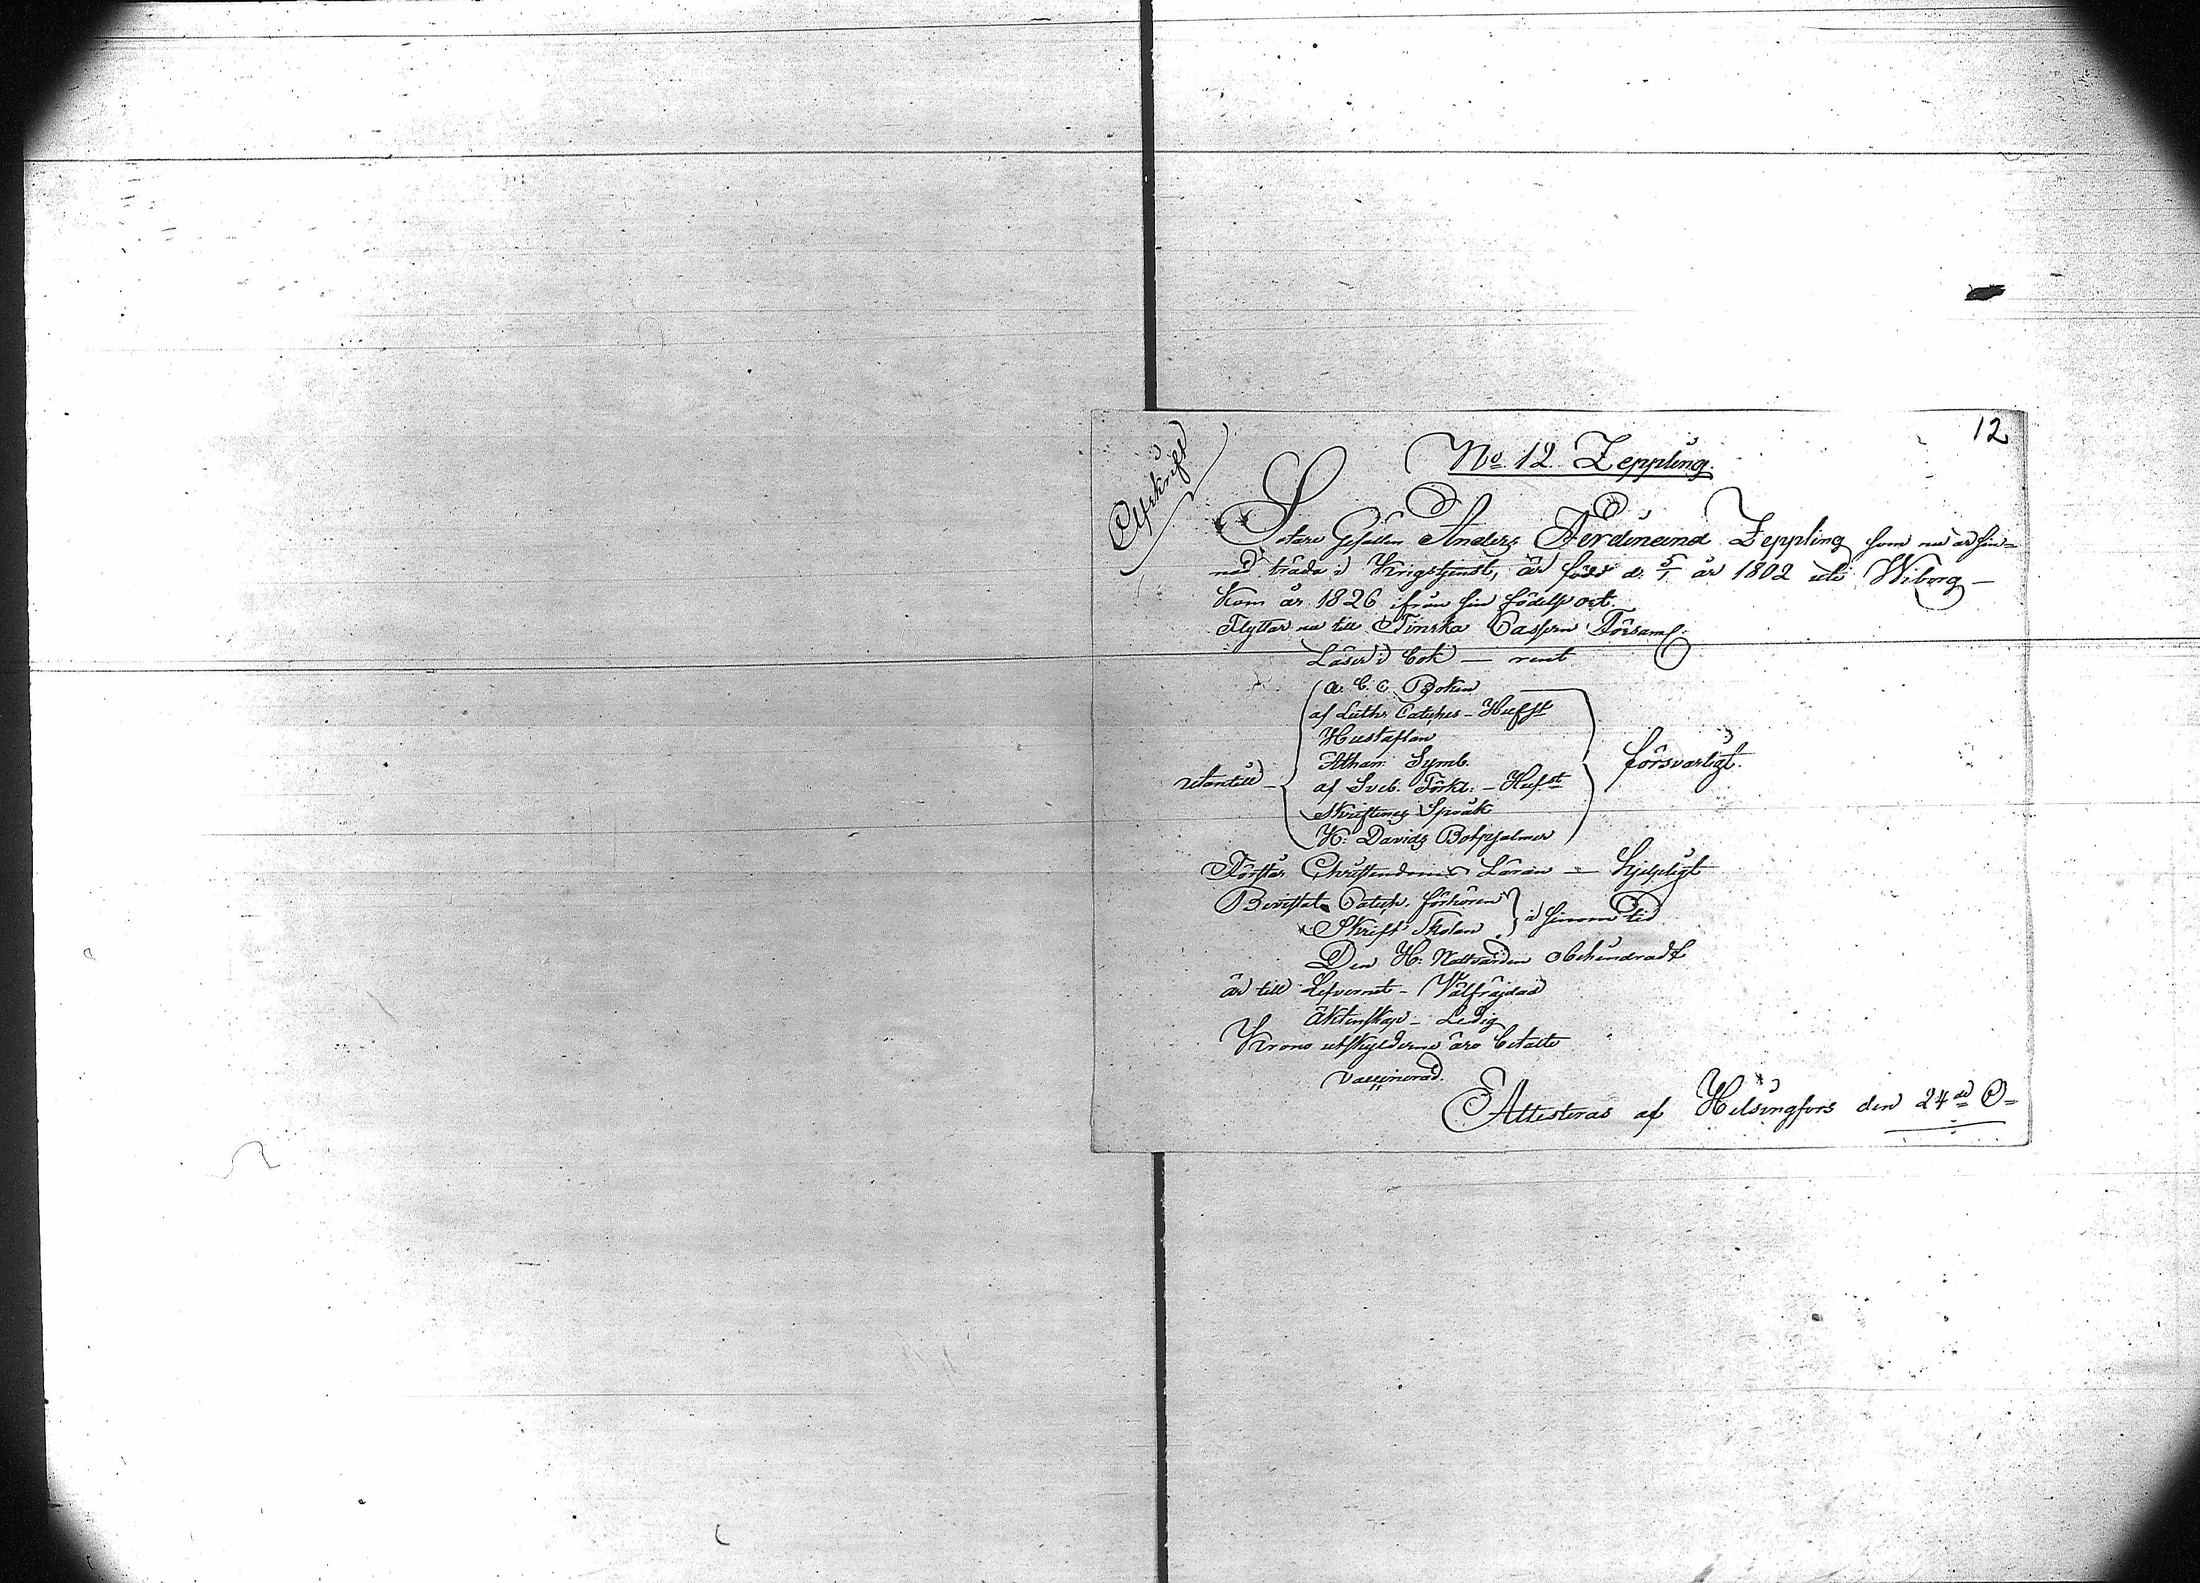 12
Afskrift
No. 12. Zeppling.
Sotare Gesällen Anders Ferdinand Zeppling som nu är sin-
nad träda i Krigstjenst, är född d. 5/1 år 1802 uti Wiborg –
Kom år 1826 ifrån sin födelse ort.
Flyttar nu till Finska Cassern Församl.
Läser i bok – rent
a. b. c. Boken
af Luths Catches – Hufst
Hustaflan
Athan: Symb.
utantill – af Sveb. Förkl: – Hufst försvarligt.
Skriftenes Språk
K: Davids Botpsalmer
Förstår Christendoms Läran – hjelpligt
Bevistat Catech. förhören
Skrift Skolan } i sinom tid
Den H: Nattvarden obehindradt
är till Lefvernet – Välfräjdad
Äktenskap – Ledig
Krono utskylderne äro betalte
vaccinerad.
Attesteras af Helsingfors den 24de O-